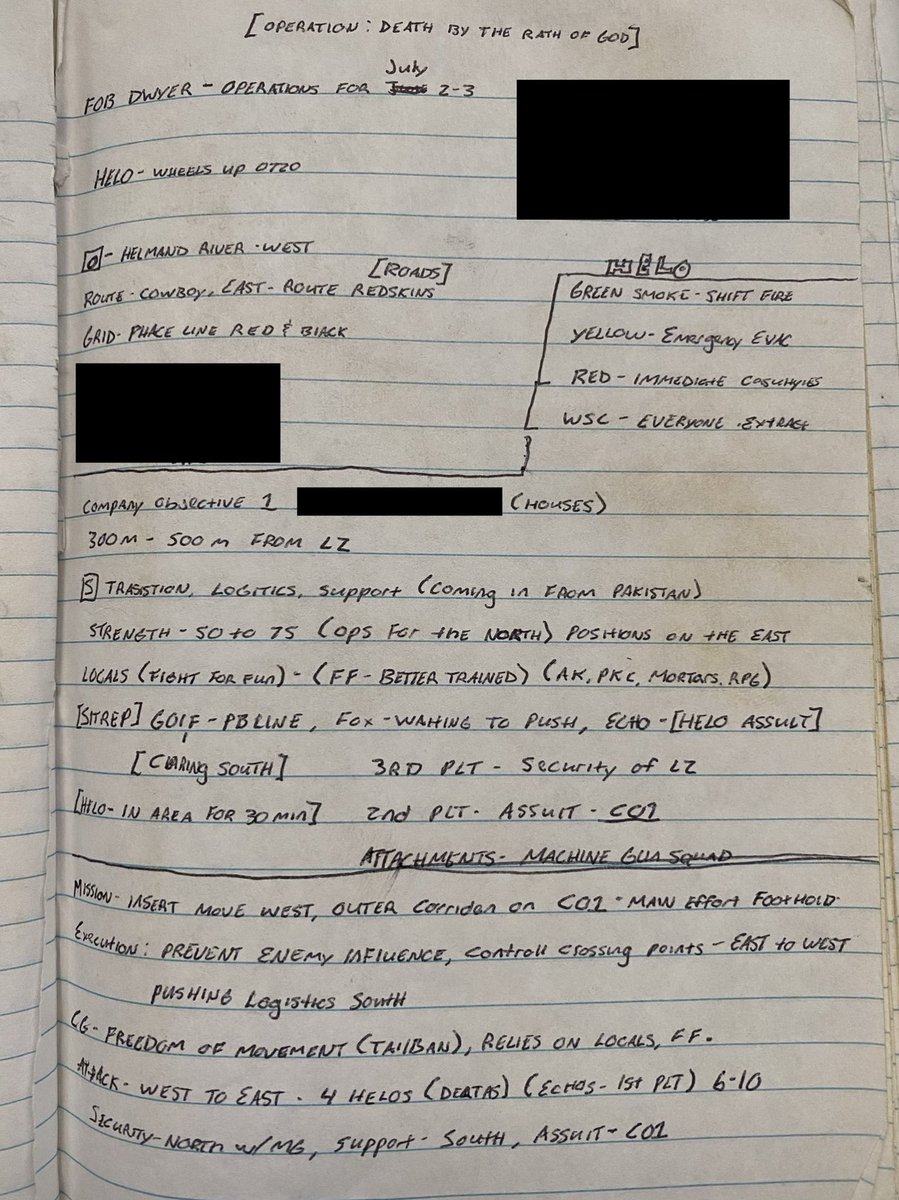 [OPERATION: DEATH BY THE RATH OF GOD]
July
FOB DWYER - OPERATIONS FOR 2-3
HELO - WHEELS UP 0720
O - HELMAND RIVER - WEST
[ROADS]
ROUTE - COWBOY, EAST - ROUTE REDSKINS
GRID - PHACE LINE RED & BLACK
HELO
GREEN SMOKE - SHIFT FIRE
YELLOW - Emergency EVAC
RED - IMMEDIATE
WSC - EVERYONE - EXTRACT
COMPANY OBJECTIVE 1 (HOUSES)
300M - 500 M FROM LZ
S TRASITION, LOGITICS, Support (Coming in FROM PAKISTAN)
STRENGTH - 50 to 75 (OPS FOR the NORTH) POSITIONS ON tHE EAST
LOCALS (FIGHT FOR FUN) - (FF - BETTER TRAINED) (AK, PKC, MORTARS, RPG)
[SITREP] GOLF - PB LINE, FOX - WAHING TO PUSH, ECHO - [HELO ASSULT]
[CLARING SOUTH] 3RD PLT - Security of LZ
[HELO - IN AREA FOR 30 MIN] 2nd PLT - ASSULT - CO1
ATTACHMENTS - MACHINE GUN SQUAD
MISSION - INSERT MOVE WEST, OUTER Corridan on CO1 - MAIN EFFORT FOOTHOLD.
Execution: PREVENT ENEMY INFLUENCE, Controll Crossing Points - EAST to WEST
PUSHING Logistics South
CG - FREEDOM OF MOVEMENT (TAILBAN), RELIES ON LOCALS, FF.
AttACK - WEST TO EAST. 4 HELOS (DELTAS) (ECHOS - 1st PLT) 6-10
SECURITY - NORTH W/MG, Support - South, ASSULT - CO1